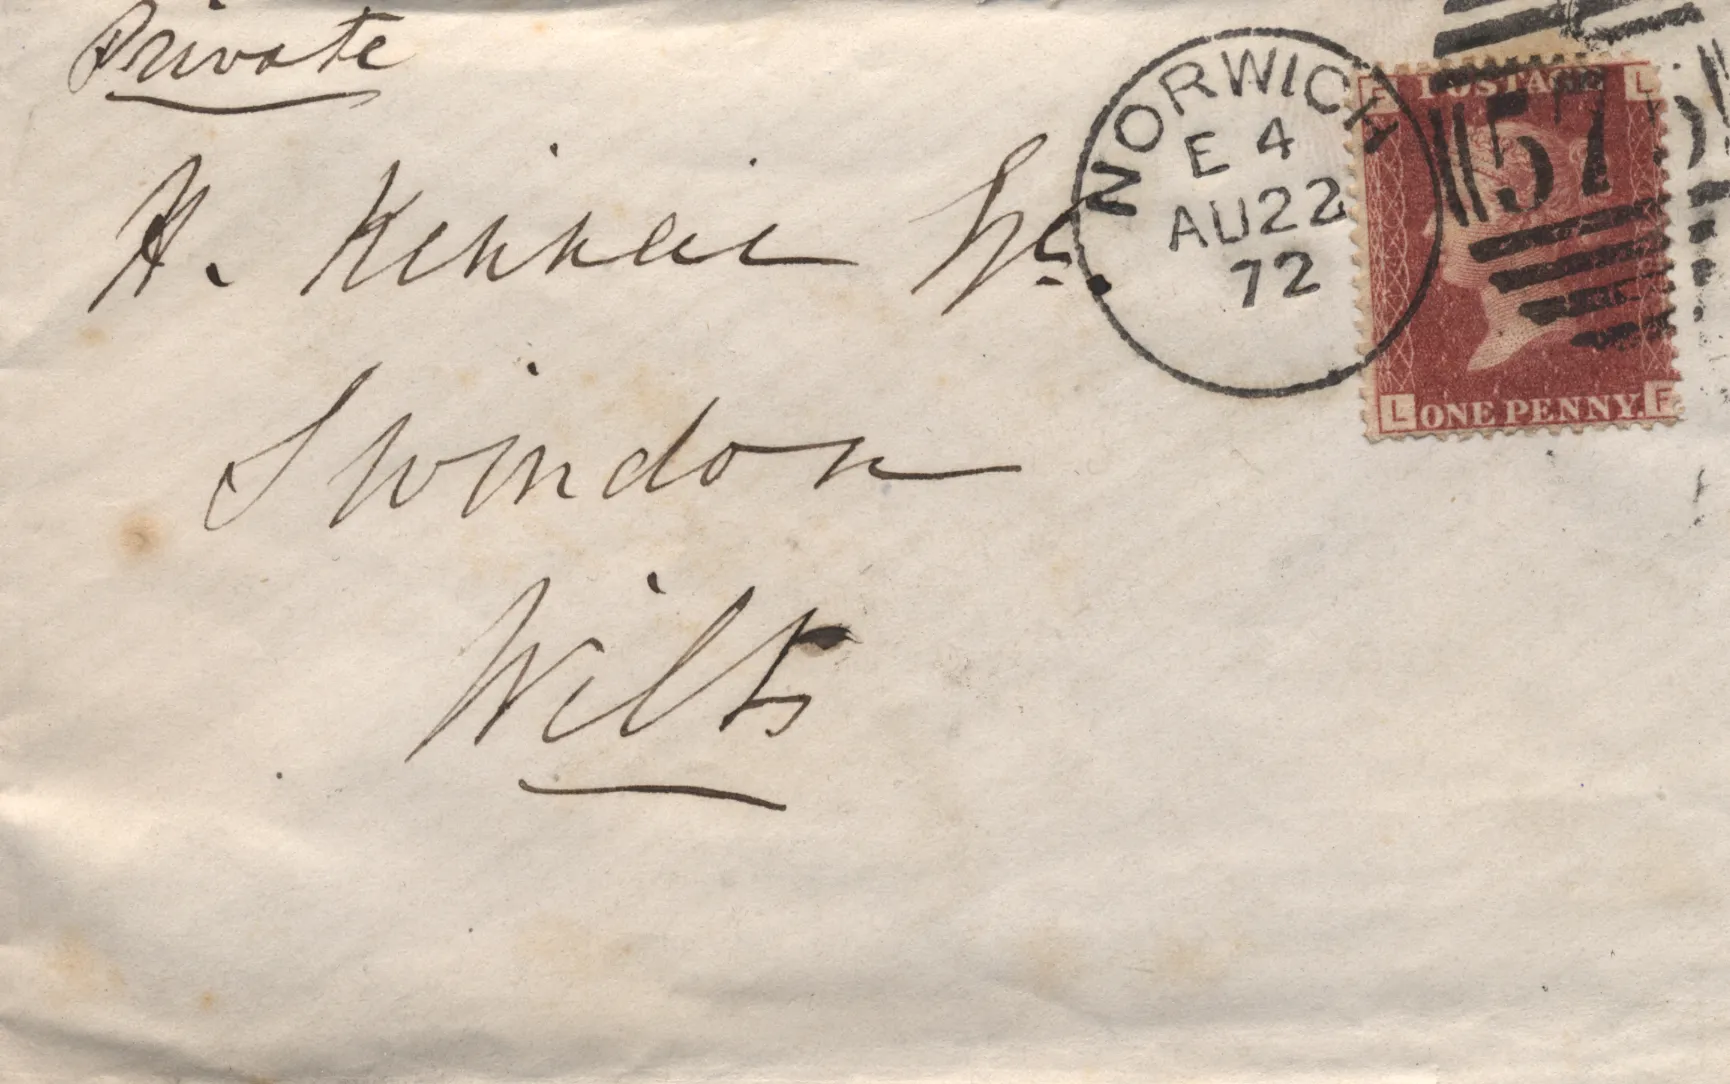 Private
H. Kinneir Esq
Swindon
Wilts
NORWICH
E 4
AU 22
72
F POSTAGE L
57
L ONE PENNY. F